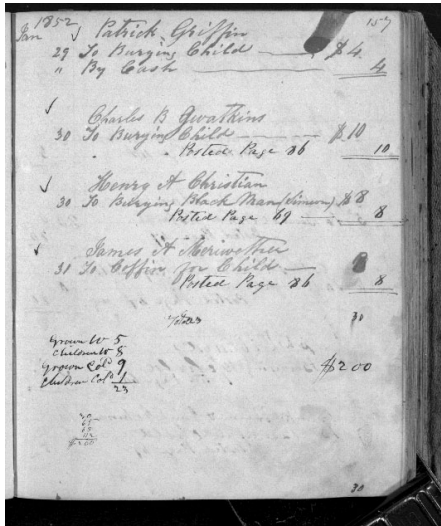 1852 157
Jan ✓ Patrick Griffin
29 To Burying Child $4
" By Cash 4
✓
Charles B Gwatkins
30 To Burying Child $10
Posted Page 86 10
✓ Henry A Christian
30 To Burying Black Man (Simeon) $8
Posted Page 69 8
✓ James A Meriwether
31 To Coffin for Child
Posted Page 86 8
30
Grown W 5
Children W 8
Grown Cold 9 $200
Children Cold 1
23
30